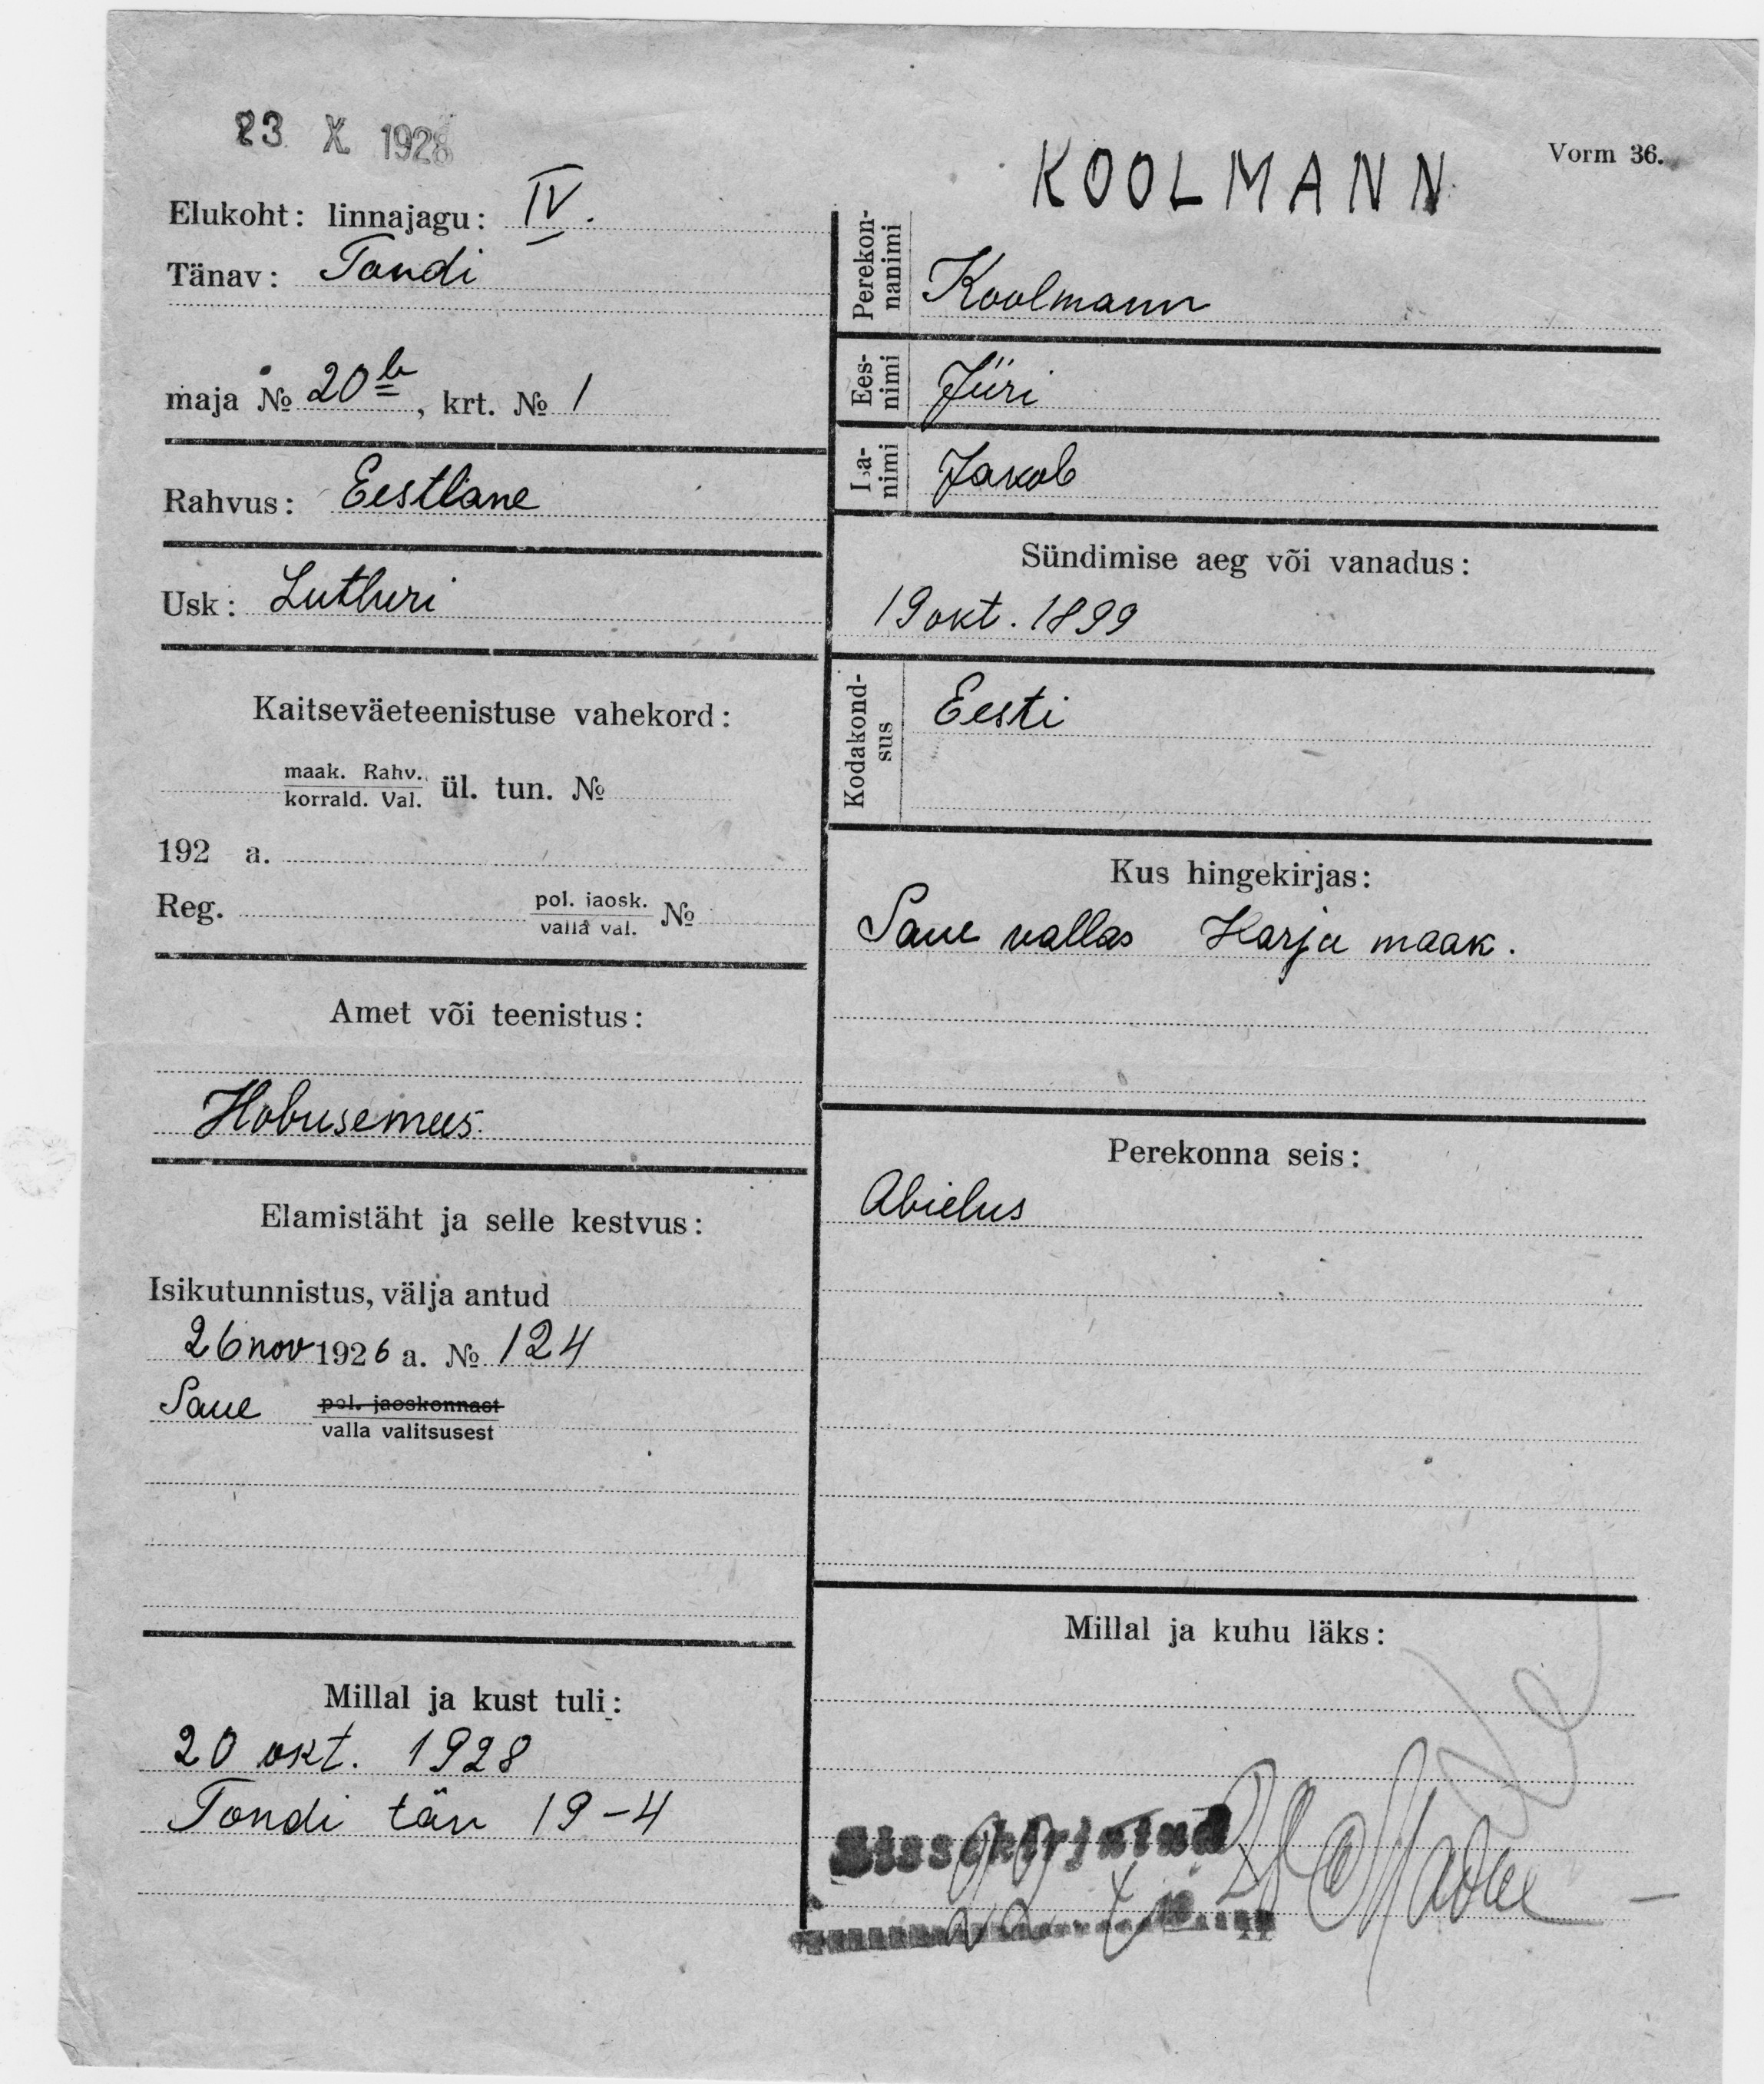 23 X 1928
KOOLMANN
Vorm 36.
Elukoht: linnajagu: IV.
Tänav: Tondi
maja № 20 b, krt. № 1
Rahvus: Eestlane
Usk: Lutluri
Kaitseväeteenistuse vahekord:
maak. Rahv.
korrald. Val. ül. tun. №
192 a.
Reg. pol. jaosk.
valla val. №
Amet või teenistus:
Hobusemees.
Elamistäht ja selle kestvus:
Isikutunnistus, välja antud
26 nov 1926 a. № 124
Saue pol. jaoskonnast
valla valitsusest
Millal ja kust tuli:
20 okt. 1928
Tondi tän 19-4
Perekon-
nanimi
Koolmann
Ees-
nimi
Jüri
Isa-
nimi
Jakob
Sündimise aeg või vanadus:
19 okt. 1899
Kodakond-
sus
Eesti
Kus hingekirjas:
Saue vallas Harju maak.
Perekonna seis:
Abielus
Millal ja kuhu läks:
Sissekirjutud